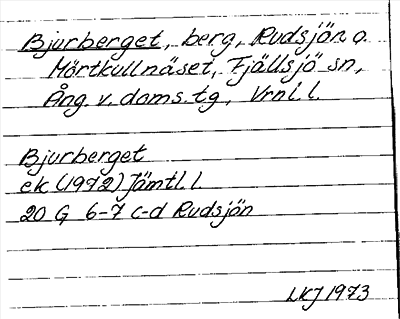 Bjurberget, berg, Rudsjön o.
Mörtkullnäset, Fjällsjö sn,
Ång. v. doms. tg, Vrnl. l.
Bjurberget
ek (1972) Jämtl. l.
20 G 6-7 c-d Rudsjön
LKJ 1973